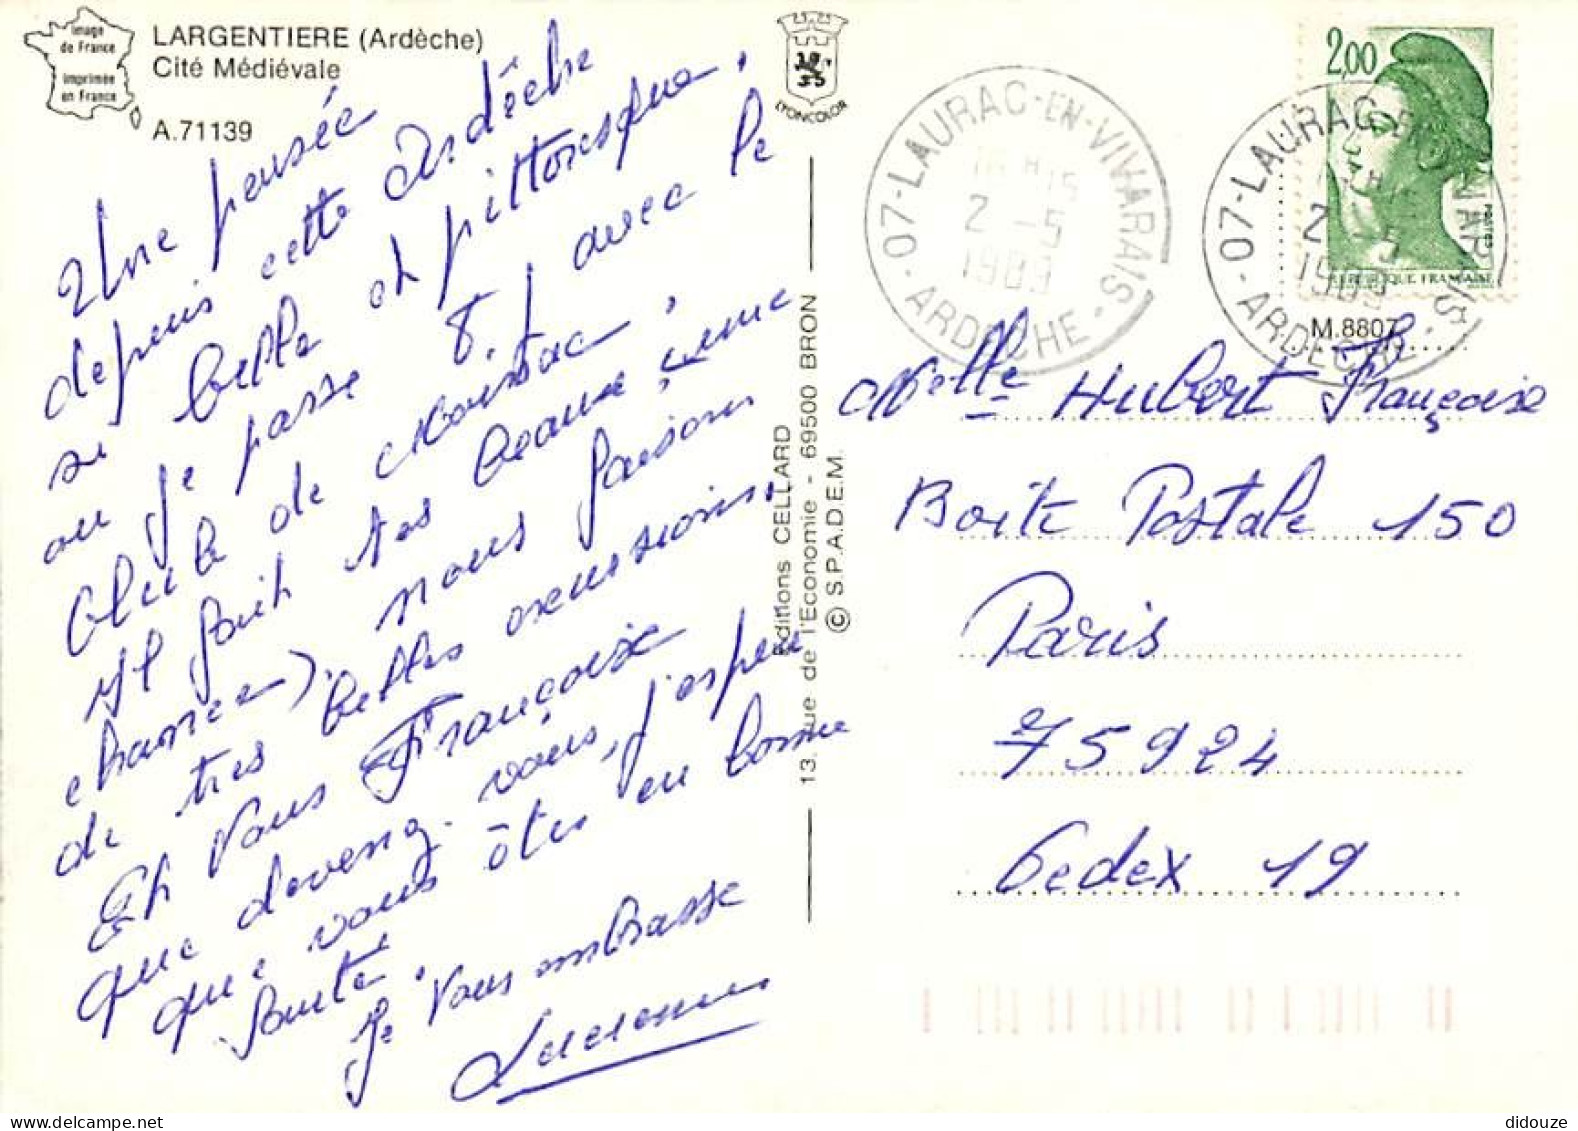 Image
de France
imprimée
en France
LARGENTIERE (Ardèche)
Cité Médiévale
A.71139
LYONCOLOR
Une pensée
depuis cette Ardèche
si belle et pittoresque,
ou je passe 8 j avec le
Club de
Il fait très beau
chance). nous faisons
de tres belles excussions.
Eh Vous Françoise
que devenez. vous, j'espère
que vous êtes en bonne
santé.
Je Vous embrasse
Editions CELLARD
13, rue de l'Economie - 69500 BRON
© S.P.A.D.E.M.
07-LAURAC-EN-VIVARAIS-
2 -5
1989
ARDECHE
2,00
POSTES
REPUBLIQUE FRANÇAISE
07-LAURAC-EN-VIVARAIS
2 -5
1989
ARDECHE
M.8807
Melle Hubert Françoise
Boite Postale 150
Paris
75924
Cedex 19
didouze